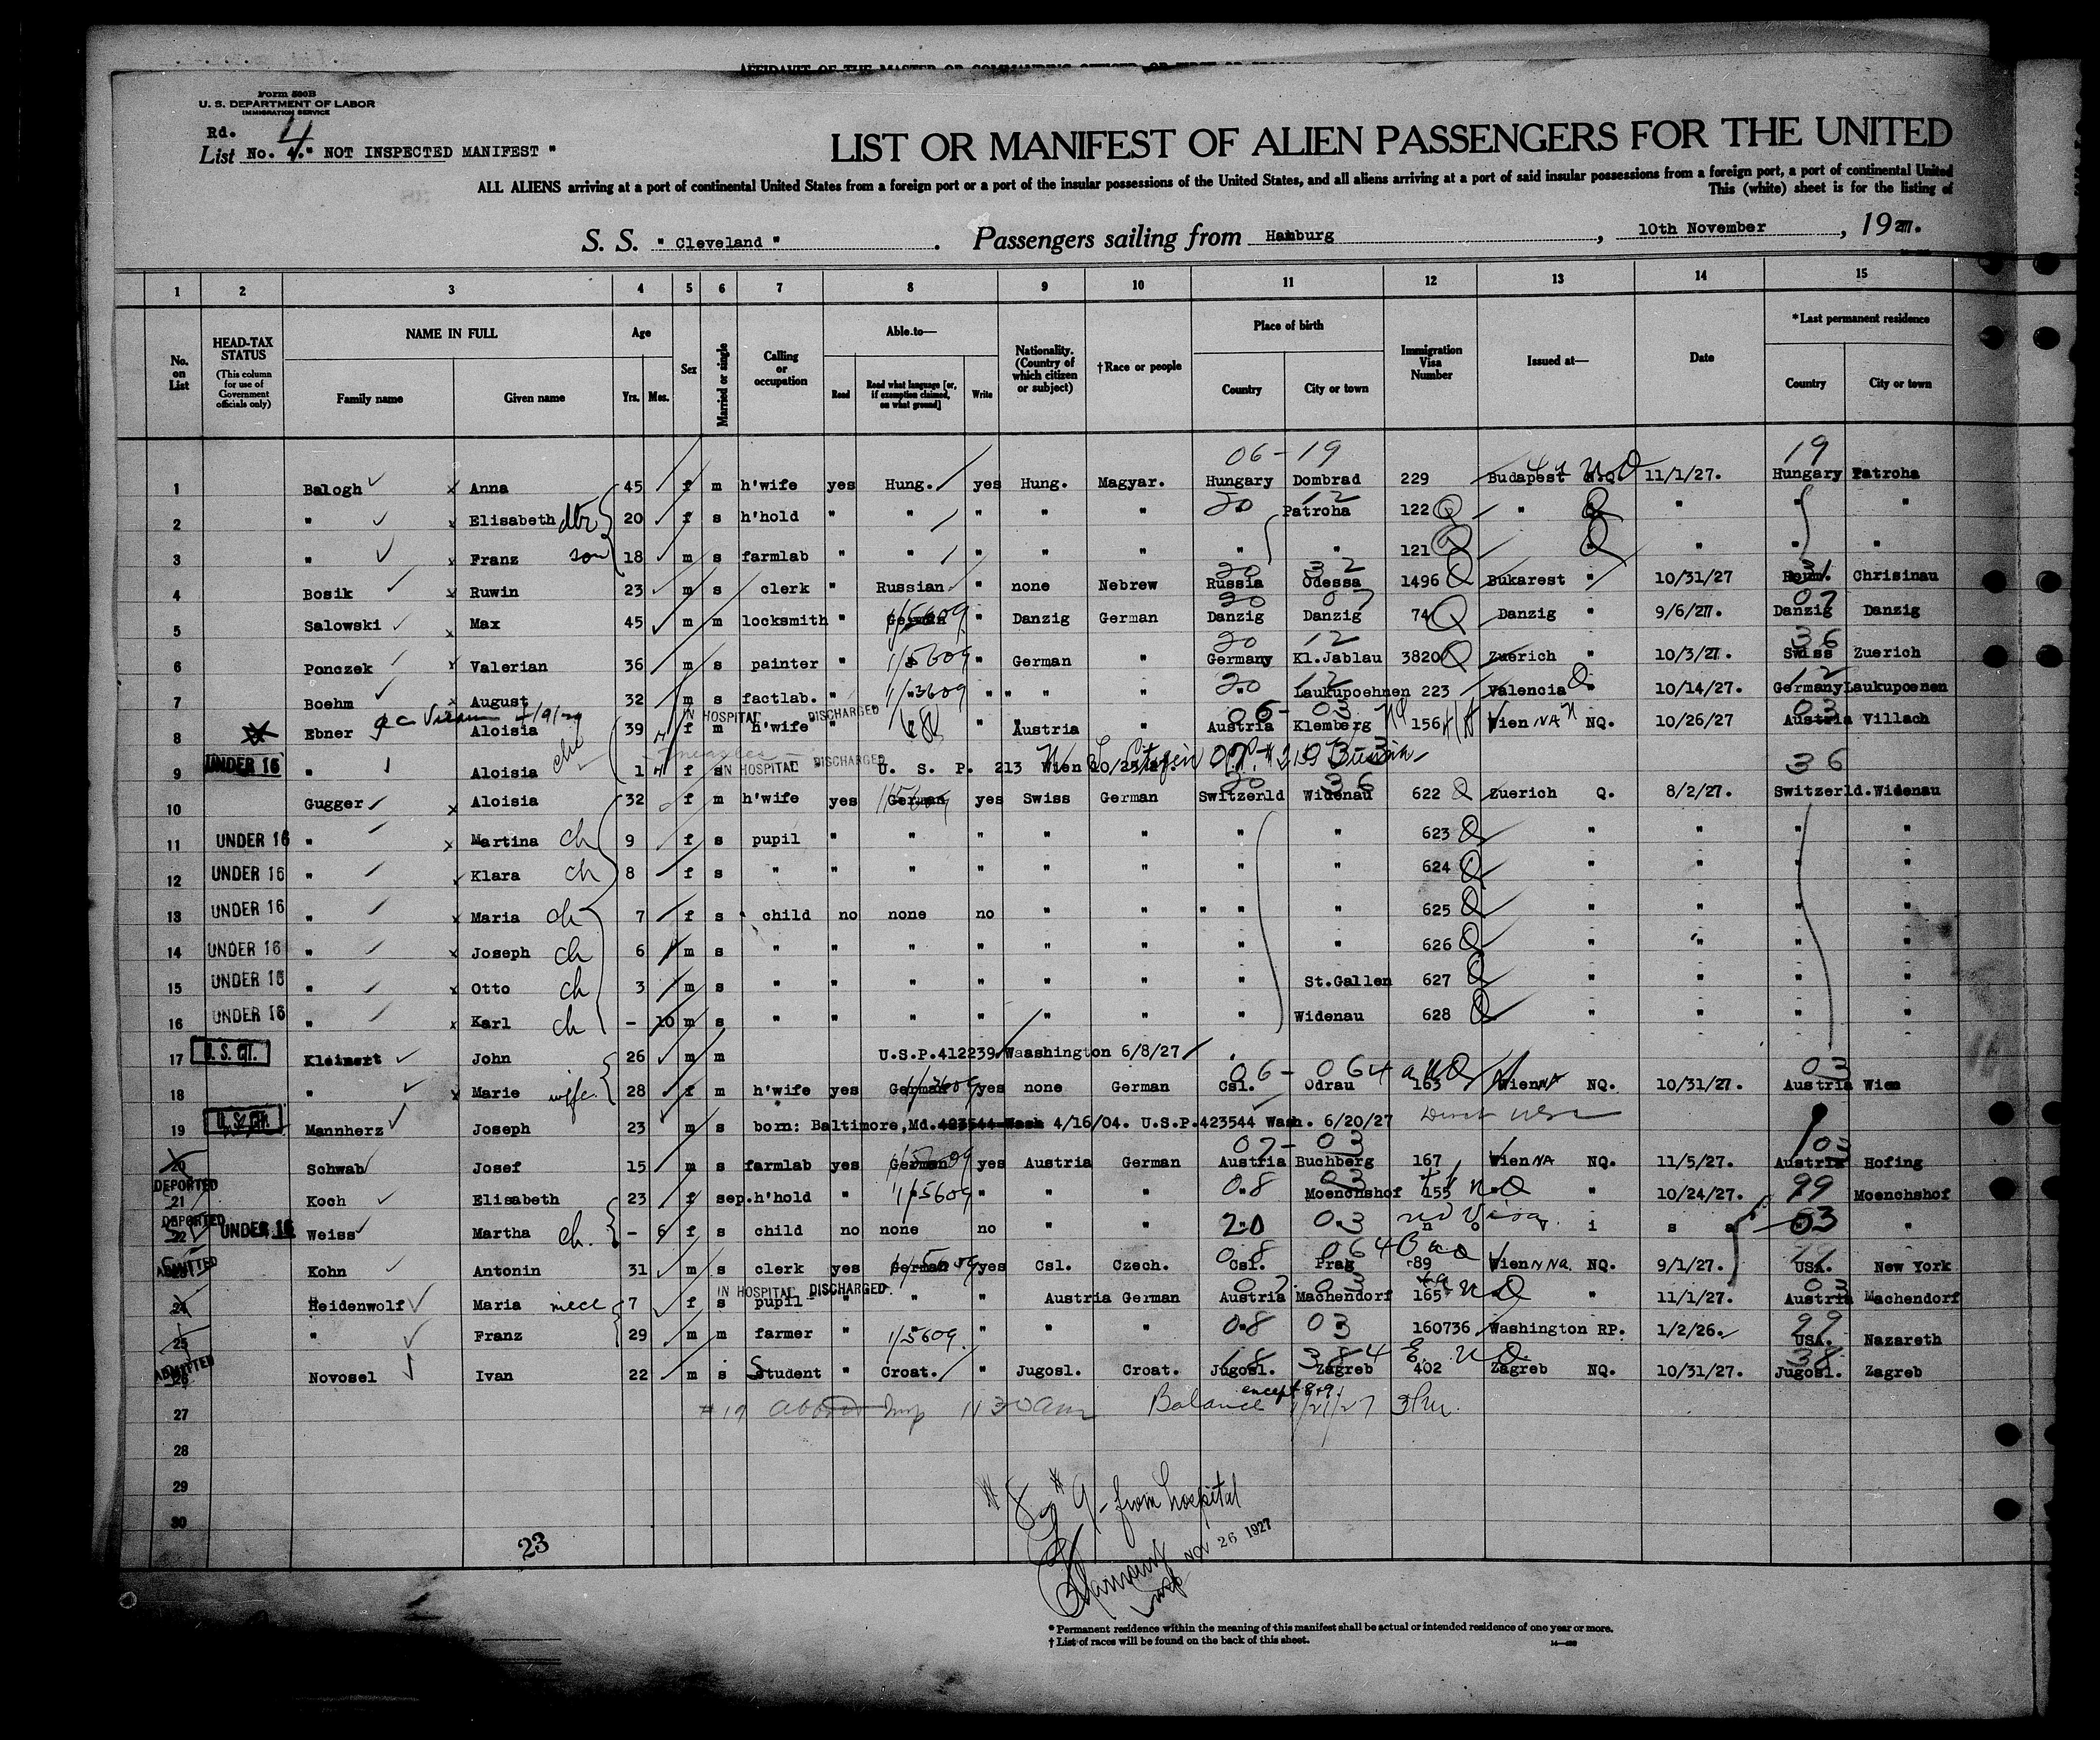 AFFIDAVIT OF THE MASTER OR COMMANDING OFFICER, OR FIRST OR
Form 500B
U. S. DEPARTMENT OF LABOR
IMMIGRATION SERVICE
Rd. 4
List No. 4." NOT INSPECTED MANIFEST "
LIST OR MANIFEST OF ALIEN PASSENGERS FOR THE UNITED
ALL ALIENS arriving at a port of continental United States from a foreign port or a port of the insular possessions of the United States, and all aliens arriving at a port of said insular possessions from a foreign port, a port of continental United
This (white) sheet is for the listing of
S. S. " Cleveland ". Passengers sailing from Hamburg, 10th November, 1927.
1 2 3 4 5 6 7 8 9 10 11 12 13 14 15
No. on List
HEAD-TAX STATUS (This column for use of Government officials only)
NAME IN FULL Family name Given name
Age Yrs. Mos.
Sex
Married or single
Calling or occupation
Able to— Read Read what language [or, if exemption claimed, on what ground] Write
Nationality. (Country of which citizen or subject)
†Race or people
Place of birth Country City or town
Immigration Visa Number
Issued at—
Date
*Last permanent residence Country City or town
06-19 19
1 Balogh Anna 45 f m h'wife yes Hung. yes Hung. Magyar. Hungary Dombrad 229 Budapest N.Q. 11/1/27. Hungary Patroha
20 12
2 " Elisabeth dtr 20 f s h'hold " " " " " Patroha 122 Q " " "
3 " Franz son 18 m s farmlab " " " " " " " 121 Q " " " "
20 32 31
4 Bosik Ruwin 23 m s clerk " Russian " none Nebrew Russia Odessa 1496 Q Bukarest " 10/31/27 Roum. Chrisinau
20 07 07
5 Salowski Max 45 m m locksmith " German 1/5609 " Danzig German Danzig Danzig 74 Q Danzig " 9/6/27. Danzig Danzig
20 12 36
6 Ponczek Valerian 36 m s painter " " 1/5609 " German " Germany Kl.Jablau 3820 Q Zuerich " 10/3/27. Swiss Zuerich
20 12 12
7 Boehm August 32 m s factlab. " " 1/3609 " " " " " Laukupoehnen 223 Valencia Q " 10/14/27. Germany Laukupoenen
IN HOSPITAL DISCHARGED 06-03 03
8 Ebner Aloisia 39 f m h'wife " Austria " Austria Klemberg 156 Wien NA NQ. 10/26/27 Austria Villach
measles
9 UNDER 16 " Aloisia 1 f s IN HOSPITAL DISCHARGED U. S. P. 213 Wien 36
20 36
10 Gugger Aloisia 32 f m h'wife yes German yes Swiss German Switzerld Widenau 622 Q Zuerich Q. 8/2/27. Switzerld. Widenau
11 UNDER 16 " Martina ch 9 f s pupil " " " " " " " 623 Q " " " "
12 UNDER 16 " Klara ch 8 f s " " " " " " " " 624 Q " " " "
13 UNDER 16 " Maria ch 7 f s child no none no " " " " " 625 Q " " " "
14 UNDER 16 " Joseph ch 6 m s " " " " " " " " 626 Q " " " "
15 UNDER 16 " Otto ch 3 m s " " " " " " " St.Gallen 627 Q " " " "
16 UNDER 16 " Karl ch - 10 m s " " " " " " " Widenau 628 Q " " " "
17 U. S. CIT. Kleinert John 26 m m U.S.P.412239 Waashington 6/8/27
06-064 03
18 " Marie wife. 28 f m h'wife yes German yes none German Csl. Odrau 163 Wien NA NQ. 10/31/27. Austria Wien
19 U. S. CIT. Mannherz Joseph 23 m s born: Baltimore,Md. 423544 Wash 4/16/04. U.S.P.423544 Wash. 6/20/27
07-03 03
20 Schwab Josef 15 m s farmlab yes German yes Austria German Austria Buchberg 167 Wien NA NQ. 11/5/27. Austria Hofing
DEPORTED 08 03 99
21 Koch Elisabeth 23 f sep. h'hold " " 1/5609 " " " " Moenchshof 155 NQ " 10/24/27. Moenchshof
DEPORTED 20 03 no visa 03
22 UNDER 16 Weiss Martha ch. - 6 f s child no none no " " " " n o v i s a "
08 064
23 ADMITTED Kohn Antonin 31 m s clerk yes German yes Csl. Czech. Csl. Prag 89 Wien NNa. NQ. 9/1/27. USA. New York
IN HOSPITAL DISCHARGED 07-03 03
24 Heidenwolf Maria niece 7 f s pupil " " " Austria German Austria Machendorf 165 NQ " 11/1/27. Austria Machendorf
08 03 99
25 " Franz 29 m m farmer " 1/5609 " " " " 160736 Washington RP. 1/2/26. USA. Nazareth
ADMITTED 18 384 38
26 Novosel Ivan 22 m s Student " Croat. " Jugosl. Croat. Jugosl. Zagreb 402 Zagreb NQ. 10/31/27. Jugosl. Zagreb
27 #19 Insp 11 30 am Balance except 8+9 1/21/27
28
29
30
#8 #9 - from hospital
NOV 26 1927
Insp
23
* Permanent residence within the meaning of this manifest shall be actual or intended residence of one year or more.
† List of races will be found on the back of this sheet.